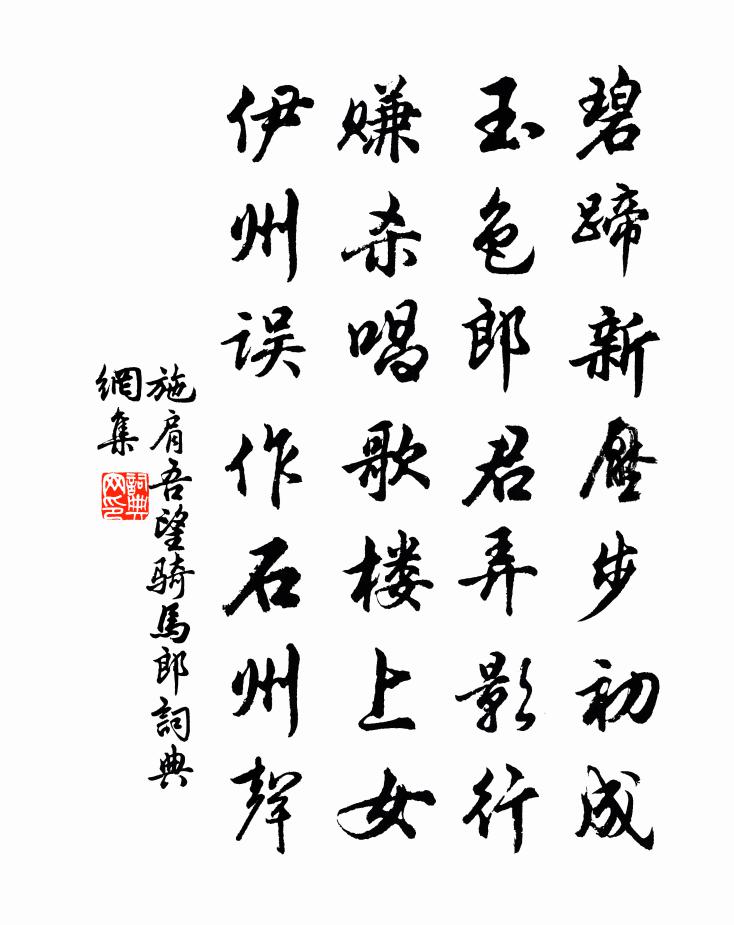 碧蹄新压步初成
玉色郎君弄影行
赚杀唱歌楼上女
伊州误作石州聲
施肩吾望骑馬郎詞典
網集
詞典
网印